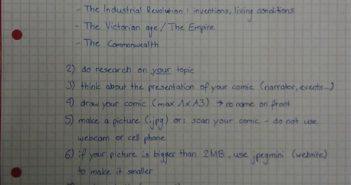 - The Industrial Revolution: inventions, living conditions
- The Victorian age / The Empire
- The Commonwealth
2) do research on your topic
3) think about the presentation of your comic (narrator, events...)
4) draw your comic (max 1xA3) → no name on front
5) make a picture (.jpg) or: scan your comic - do not use
webcam or cell phone
6) if your picture is bigger than 2MB, use jpegmini (website)
to make it smaller